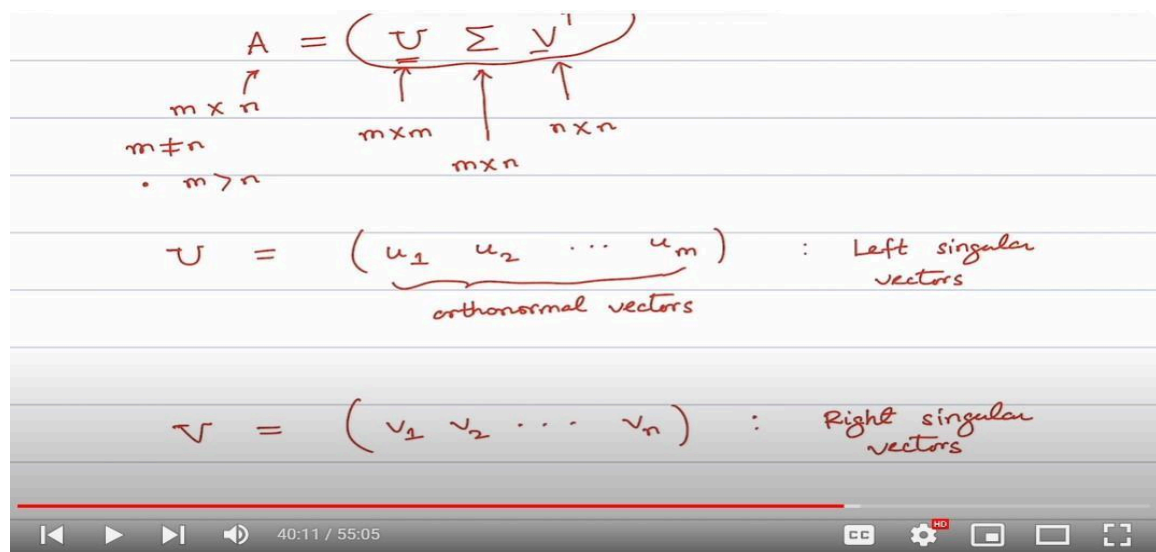 A = ( U Σ Vᵀ )
m × n
m × m
n × n
m ≠ n
m × n
· m > n
U = ( u₁ u₂ ... uₘ ) : Left singular
vectors
orthonormal vectors
V = ( v₁ v₂ .... vₙ ) : Right singular
vectors
40:11 / 55:05
CC
HD